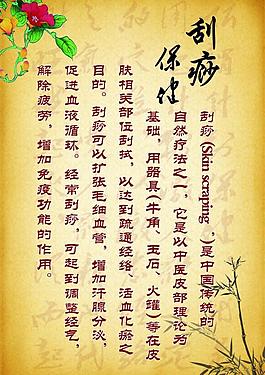 刮痧
保健
刮痧(Skin scraping,)是中国传统的
自然疗法之一，它是以中医皮部理论为
基础，用器具(牛角、玉石、火罐)等在皮
肤相关部位刮拭，以达到疏通经络、活血化瘀之
目的。刮痧可以扩张毛细血管，增加汗腺分泌，
促进血液循环。经常刮痧，可起到调整经气，
解除疲劳，增加免疫功能的作用。